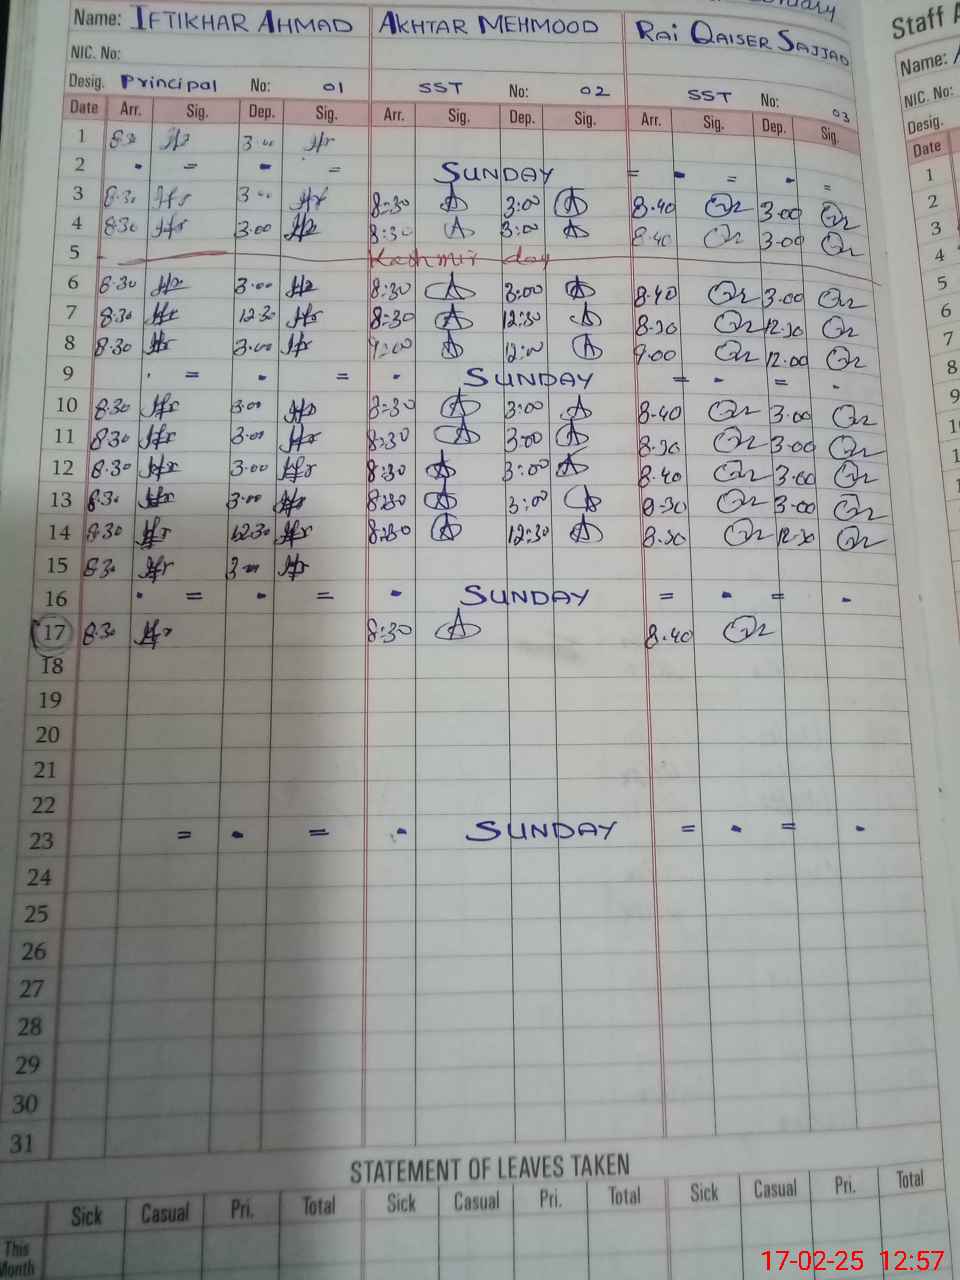 Staff A
Name: IFTIKHAR AHMAD AKHTAR MEHMOOD RAI QAISER SAJJAD
Name:
NIC. No:
NIC. No:
Desig. Principal No: 01 SST No: 02 SST No: 03
Desig.
Date Arr. Sig. Dep. Sig. Arr. Sig. Dep. Sig. Arr. Sig. Dep. Sig.
Date
1 8.30 3.00
2 - = - = SUNDAY = - = - =
3 8.30 3.00 8:30 3:00 8.40 3.00
4 8.30 3.00 8:30 3:00 8.40 3.00
5 Kashmir day
6 8.30 3.00 8:30 3:00 8.40 3.00
7 8.30 12.30 8:30 12:30 8.30 12.30
8 8.30 3.00 9:00 12:00 9.00 12.00
9 . = - = - SUNDAY = - = -
10 8.30 3.00 8:30 3:00 8.40 3.00
11 8.30 3.00 8:30 3:00 8.30 3.00
12 8.30 3.00 8:30 3:00 8.40 3.00
13 8.30 3.00 8:30 3:00 8.30 3.00
14 8.30 12.30 8:30 12:30 8.30 12.30
15 8.30 3.00
16 - = - = - SUNDAY = - = -
17 8.30 8:30 8.40
18
19
20
21
22
23 = - = - SUNDAY = - = -
24
25
26
27
28
29
30
31
STATEMENT OF LEAVES TAKEN
Sick Casual Pri. Total Sick Casual Pri. Total Sick Casual Pri. Total
This
Month
17-02-25 12:57